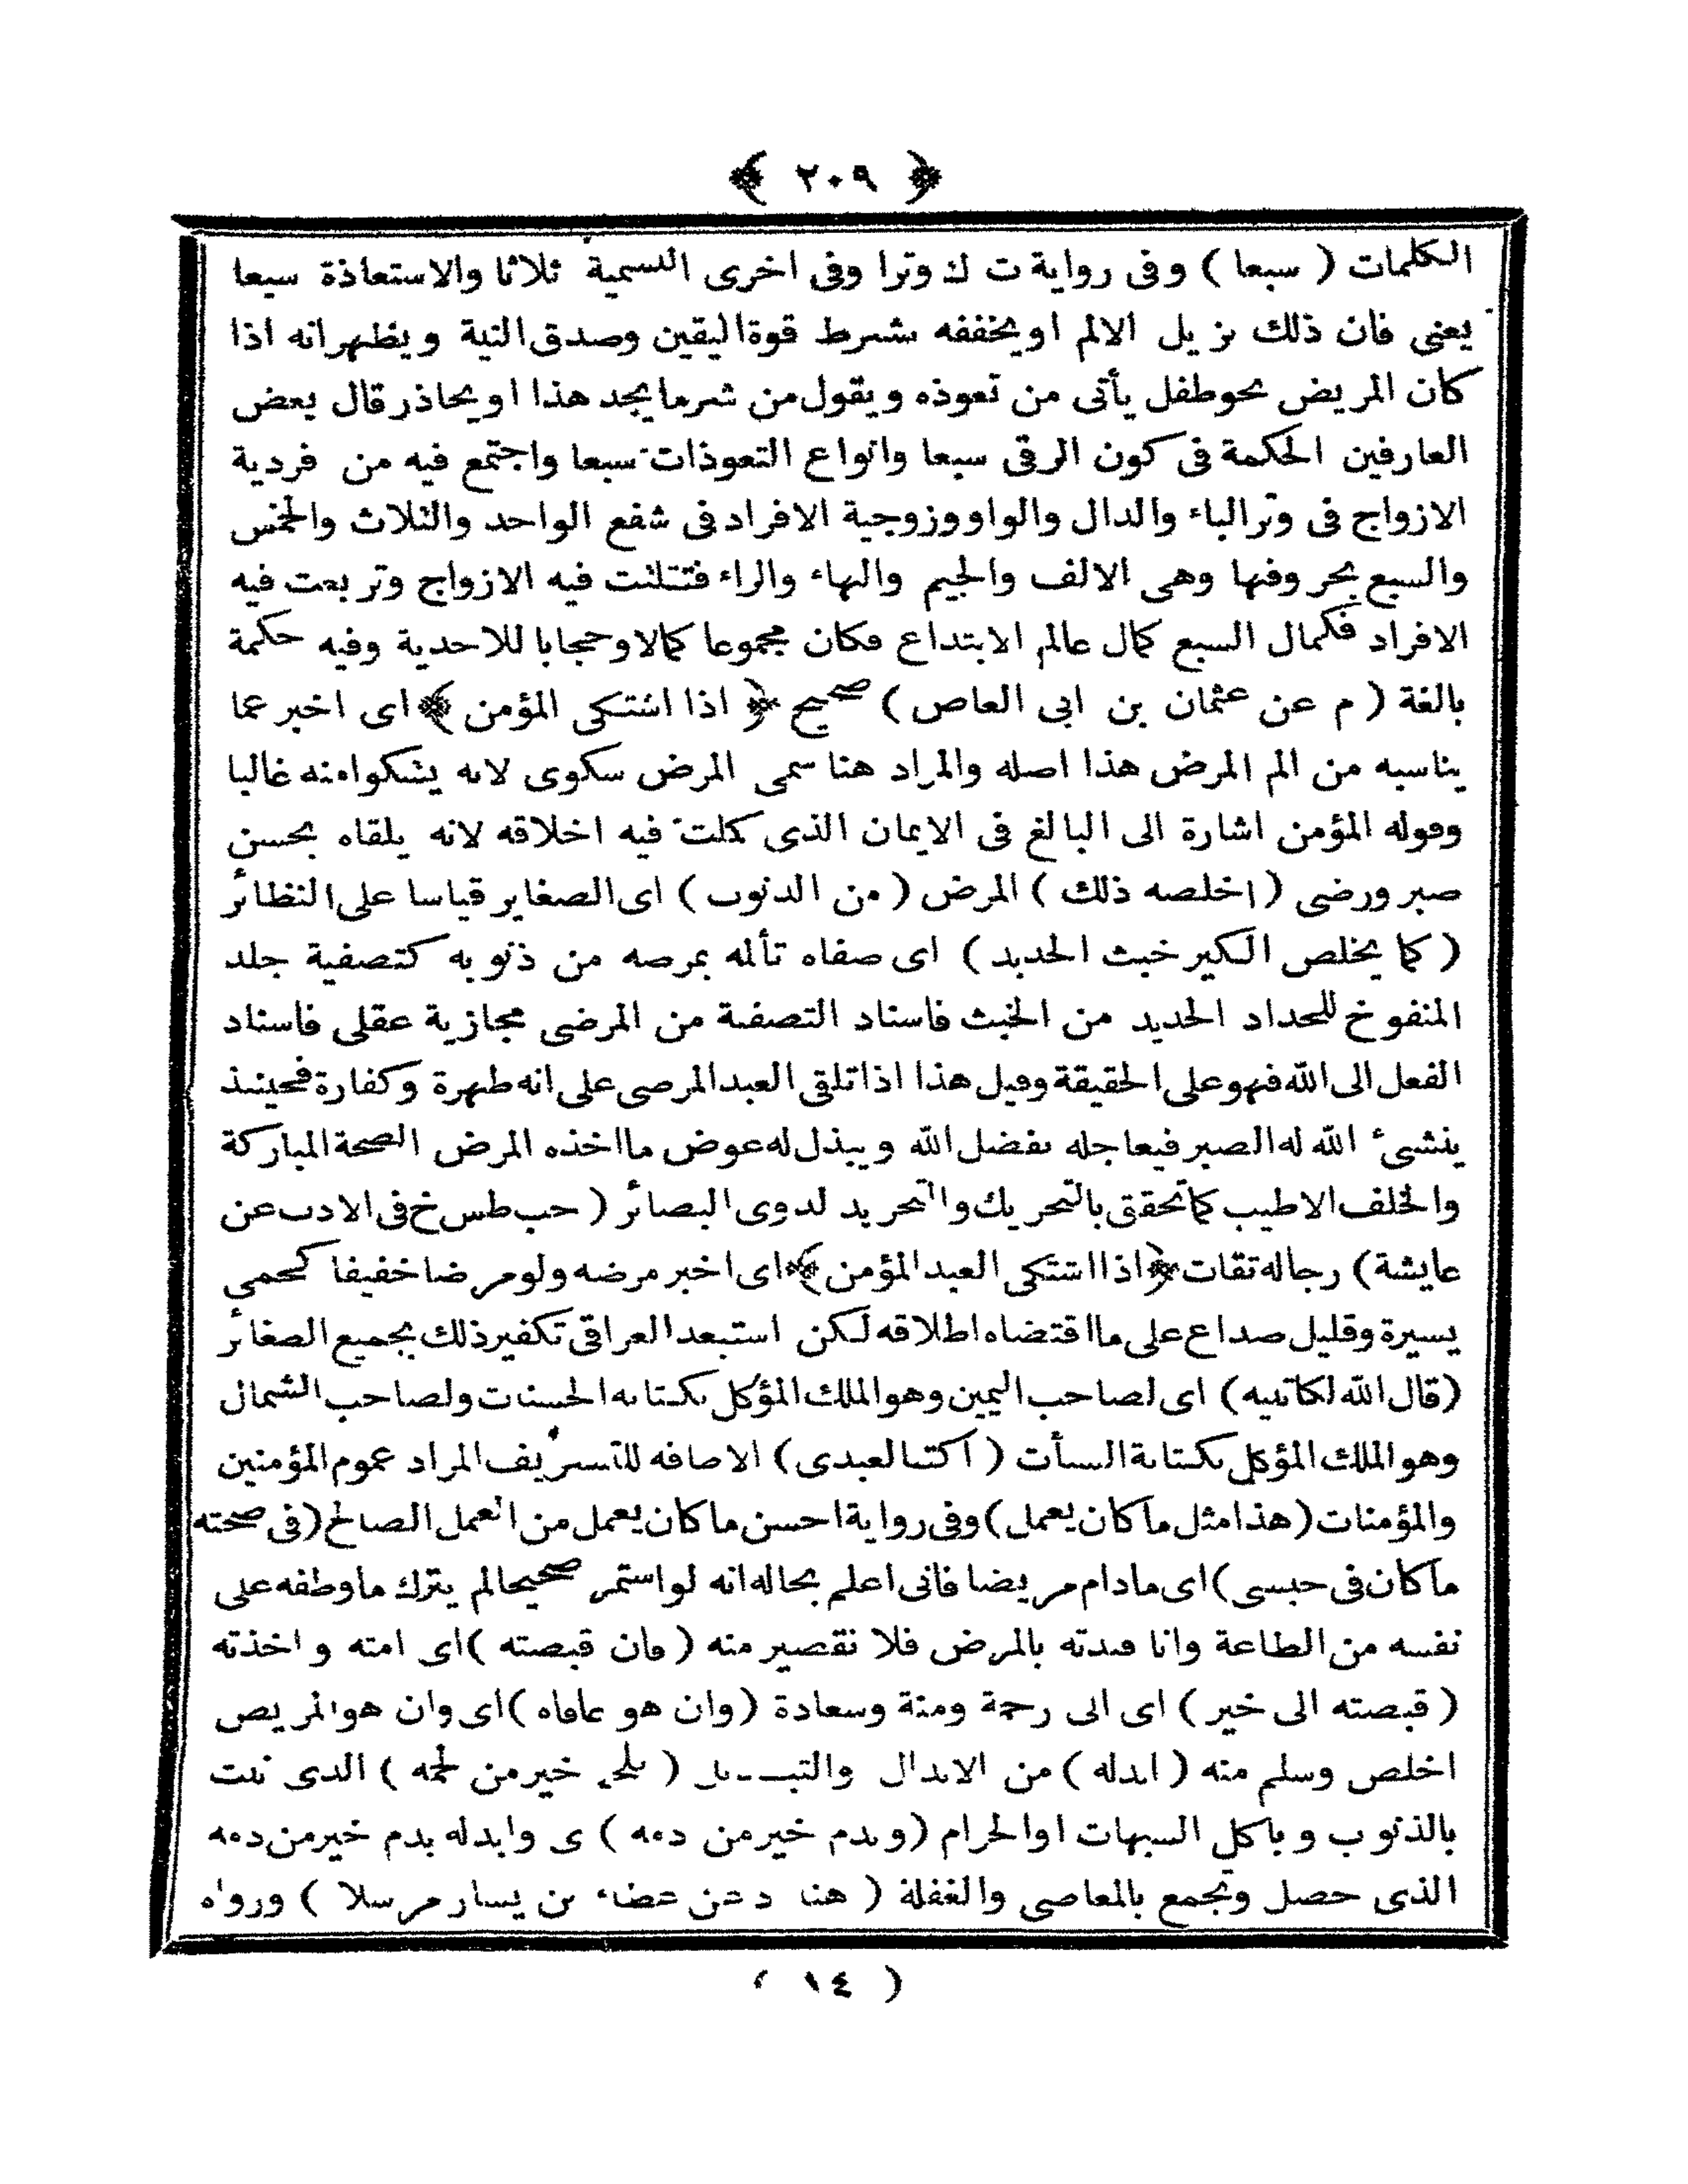 ﴿ ٢٠٩ ﴾
الكلمات ( سبعا ) وفى رواية ت ك وترا وفى اخرى التسمية ثلاثا والاستعاذة سبعا
يعنى فان ذلك يزيل الالم او يخففه بشرط قوة اليقين وصدق النية ويظهر انه اذا
كان المريض نحو طفل يأتى من تعوذه ويقول من شر ما يجد هذا او يحاذر قال بعض
العارفين الحكمة فى كون الرقى سبعا وانواع التعوذات سبعا واجتمع فيه من فردية
الازواج فى وتر الباء والدال والواو وزوجية الافراد فى شفع الواحد والثلاث والخمس
والسبع بحروفها وهى الالف والجيم والهاء والراء فتثلثت فيه الازواج وتربعت فيه
الافراد فكمال السبع كمال عالم الابتداع فكان مجموعا كمالا وحجابا للاحدية وفيه حكمة
بالغة ( م عن عثمان بن ابى العاص ) صحيح ﴿ اذا اشتكى المؤمن ﴾ اى اخبر عما
يناسبه من الم المرض هذا اصله والمراد هنا سمى المرض شكوى لانه يشكوا منه غالبا
وقوله المؤمن اشارة الى البالغ فى الايمان الذى كملت فيه اخلاقه لانه يلقاه بحسن
صبر ورضى ( اخلصه ذلك ) المرض ( من الذنوب ) اى الصغاير قياسا على النظائر
( كما يخلص الكير خبث الحديد ) اى صفاه تألمه بمرضه من ذنوبه كتصفية جلد
المنفوخ للحداد الحديد من الخبث فاسناد التصفية من المرضى مجازية عقلى فاسناد
الفعل الى الله فهو على الحقيقة وقيل هذا اذا تلقى العبد المرضى على انه طهرة وكفارة فحينئذ
ينشئ الله له الصبر فيعاجله بفضل الله ويبذل له عوض ما اخذه المرض الصحة المباركة
والخلف الاطيب كما تحقق بالتحريك والتحريد لذوى البصائر ( حب طس خ فى الادب عن
عايشة ) رجاله ثقات ﴿ اذا اشتكى العبد المؤمن ﴾ اى اخبر مرضه ولو مرضا خفيفا كحمى
يسيرة وقليل صداع على ما اقتضاه اطلاقه لكن استبعد العراقى تكفير ذلك بجميع الصغائر
( قال الله لكاتبيه ) اى لصاحب اليمين وهو الملك المؤكل بكتابه الحسنات ولصاحب الشمال
وهو الملك المؤكل بكتابة السيأت ( اكتبا لعبدى ) الاضافه للتشريف المراد عموم المؤمنين
والمؤمنات ( هذا مثل ما كان يعمل ) وفى رواية احسن ما كان يعمل من العمل الصالح ( فى صحته
ما كان فى حبسى ) اى مادام مريضا فانى اعلم بحاله انه لو استمر صحيحا لم يترك ما وظفه على
نفسه من الطاعة وانا قيدته بالمرض فلا تقصير منه ( فان قبضته ) اى امته واخذته
( قبضته الى خير ) اى الى رحمة ومنة وسعادة ( وان هو عافاه ) اى وان هو المريض
اخلص وسلم منه ( ابدله ) من الابدال والتبديل ( بلحم خير من لحمه ) الذى نبت
بالذنوب وباكل الشبهات او الحرام ( وبدم خير من دمه ) ى وابدله بدم خير من دمه
الذى حصل وتجمع بالمعاصى والغفلة ( هناد عن عطاء بن يسار مرسلا ) ورواه
( ١٤ )